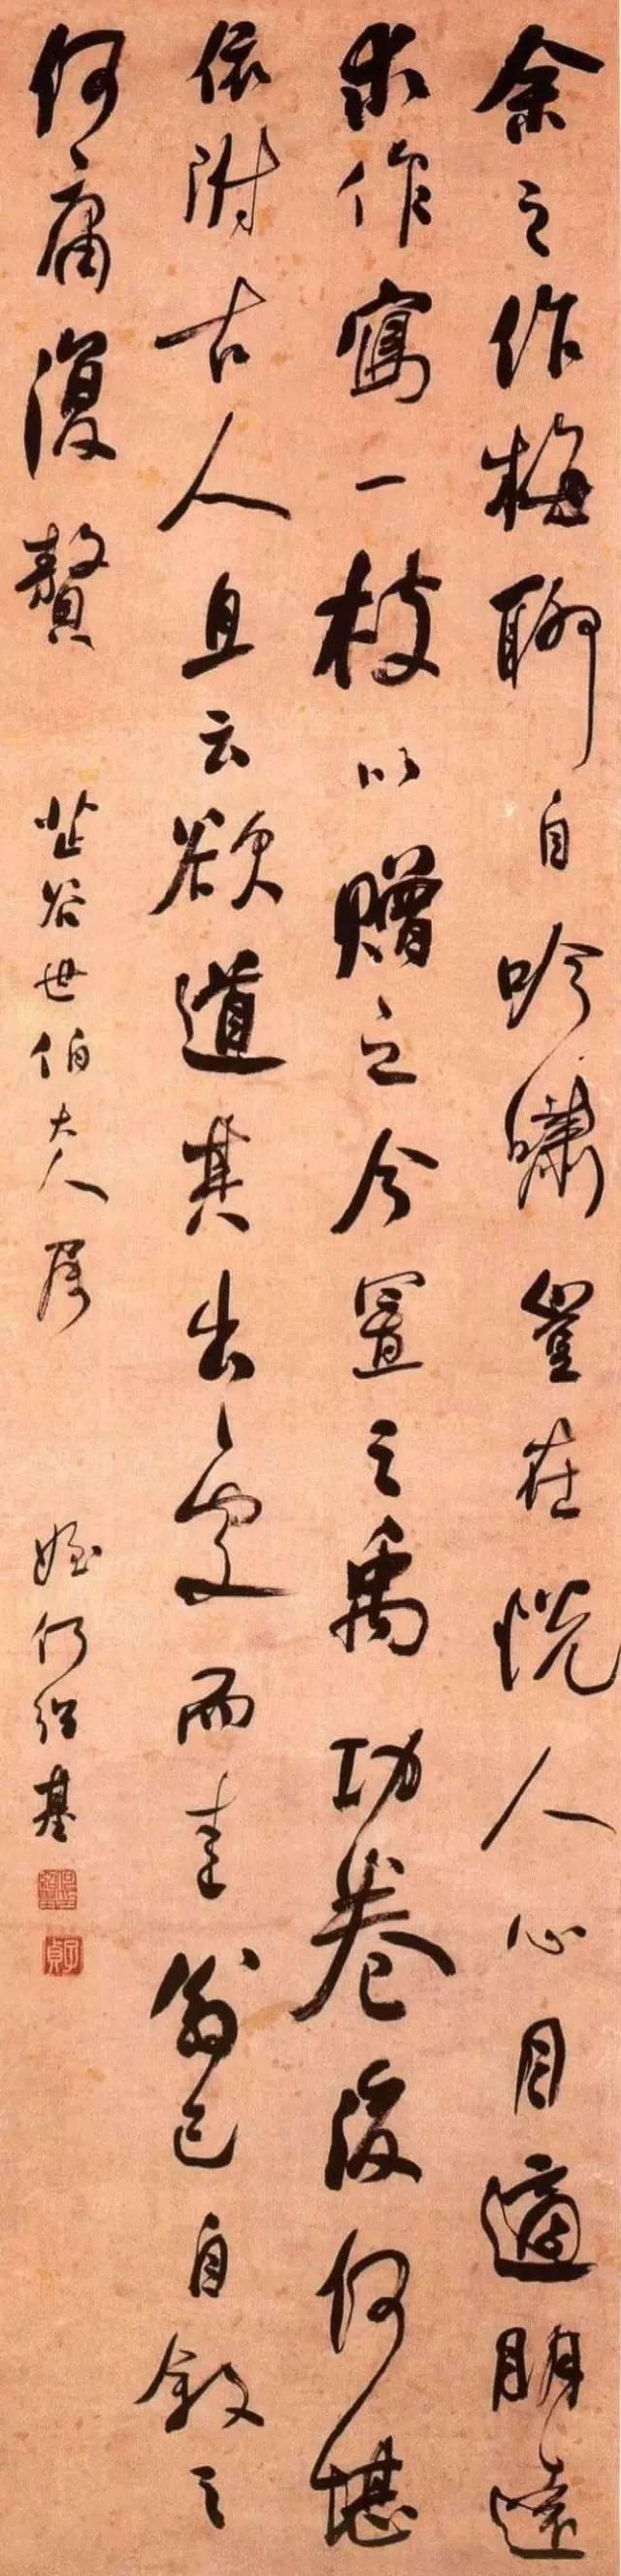 余之作梅聊自吟嘯豈在悦人心目適明遠
求作寫一枝以贈之今置之禹功卷後何堪
依附古人且云欲道其出處而逃翁已自敘之
何庸復贅
芷谷世伯大人屬
姪何紹基
子貞